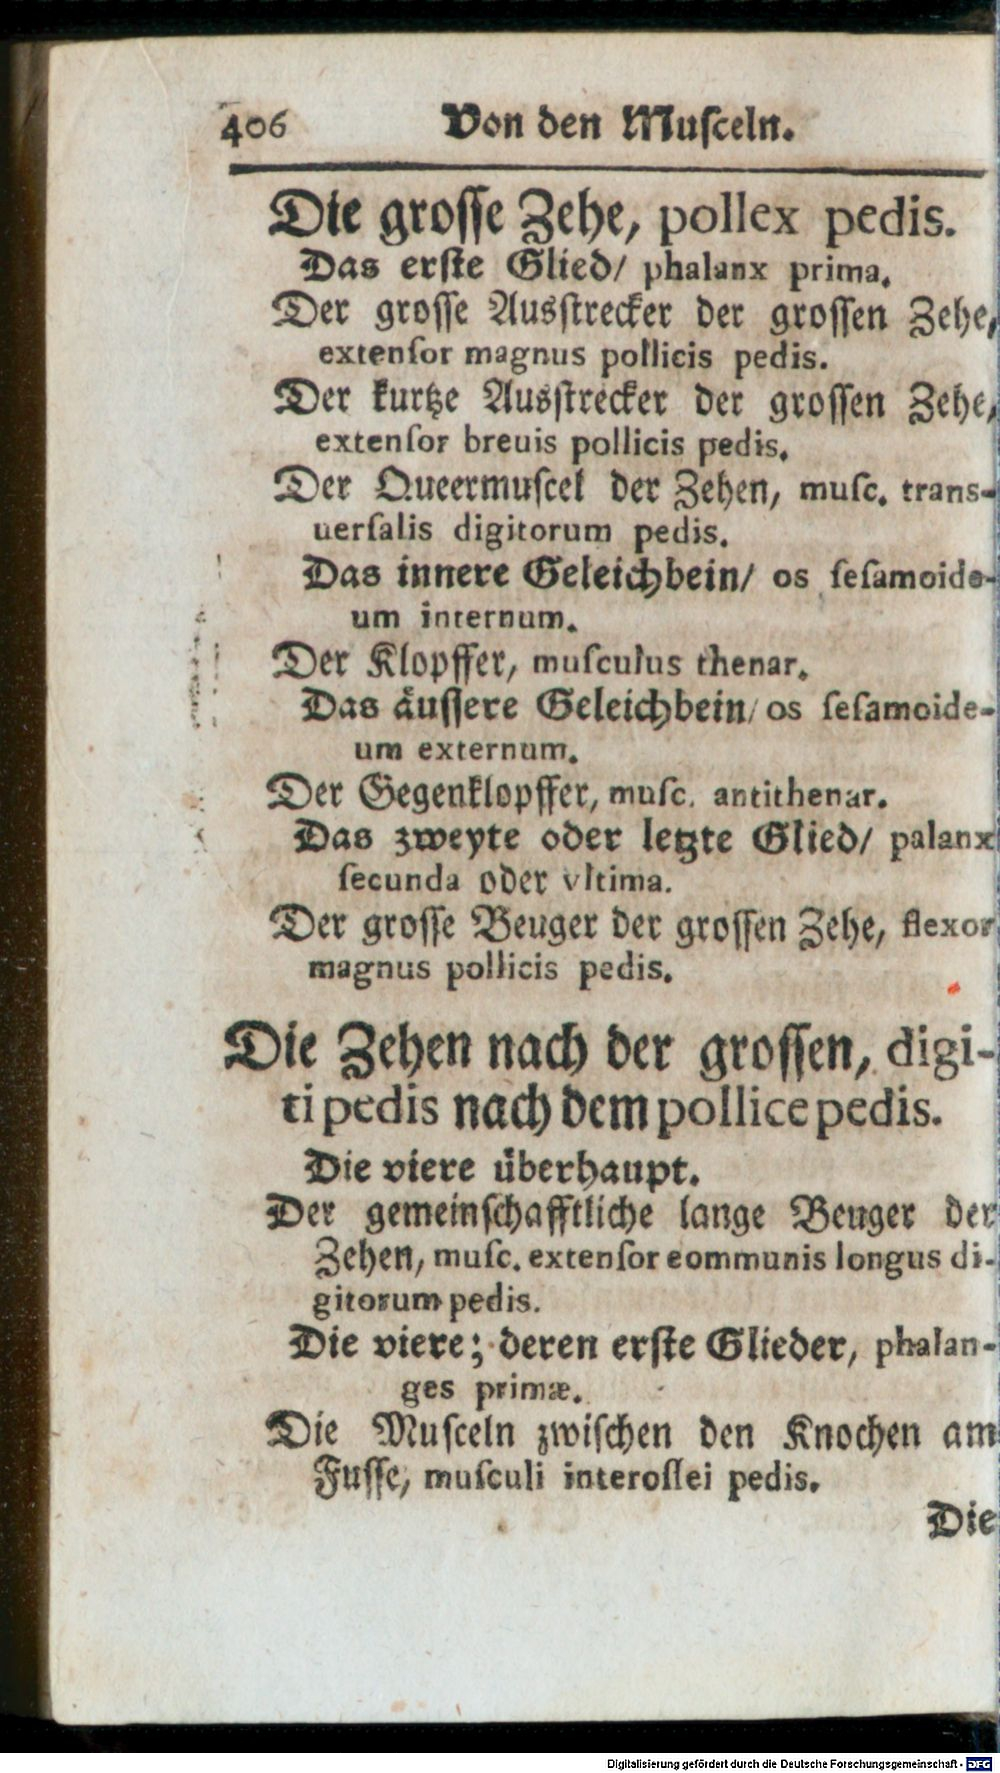 406 Von den Muſceln.
Die groſſe Zehe, pollex pedis.
Das erſte Glied/ phalanx prima.
Der groſſe Ausſtrecker der groſſen Zehe,
extenſor magnus pollicis pedis.
Der kurtze Ausſtrecker der groſſen Zehe,
extenſor breuis pollicis pedis.
Der Queermuſcel der Zehen, muſc. trans-
uerſalis digitorum pedis.
Das innere Geleichbein/ os ſeſamoide-
um internum.
Der Klopffer, muſculus thenar.
Das äuſſere Geleichbein/ os ſeſamoide-
um externum.
Der Gegenklopffer, muſc. antithenar.
Das zweyte oder letzte Glied/ palanx
ſecunda oder vltima.
Der groſſe Beuger der groſſen Zehe, flexor
magnus pollicis pedis.
Die Zehen nach der groſſen, digi-
ti pedis nach dem pollice pedis.
Die viere überhaupt.
Der gemeinſchafftliche lange Beuger der
Zehen, muſc. extenſor eommunis longus di-
gitorum pedis.
Die viere; deren erſte Glieder, phalan-
ges primæ.
Die Muſceln zwiſchen den Knochen am
Fuſſe, muſculi interoſſei pedis.
Die
Digitalisierung gefördert durch die Deutsche Forschungsgemeinschaft - DFG